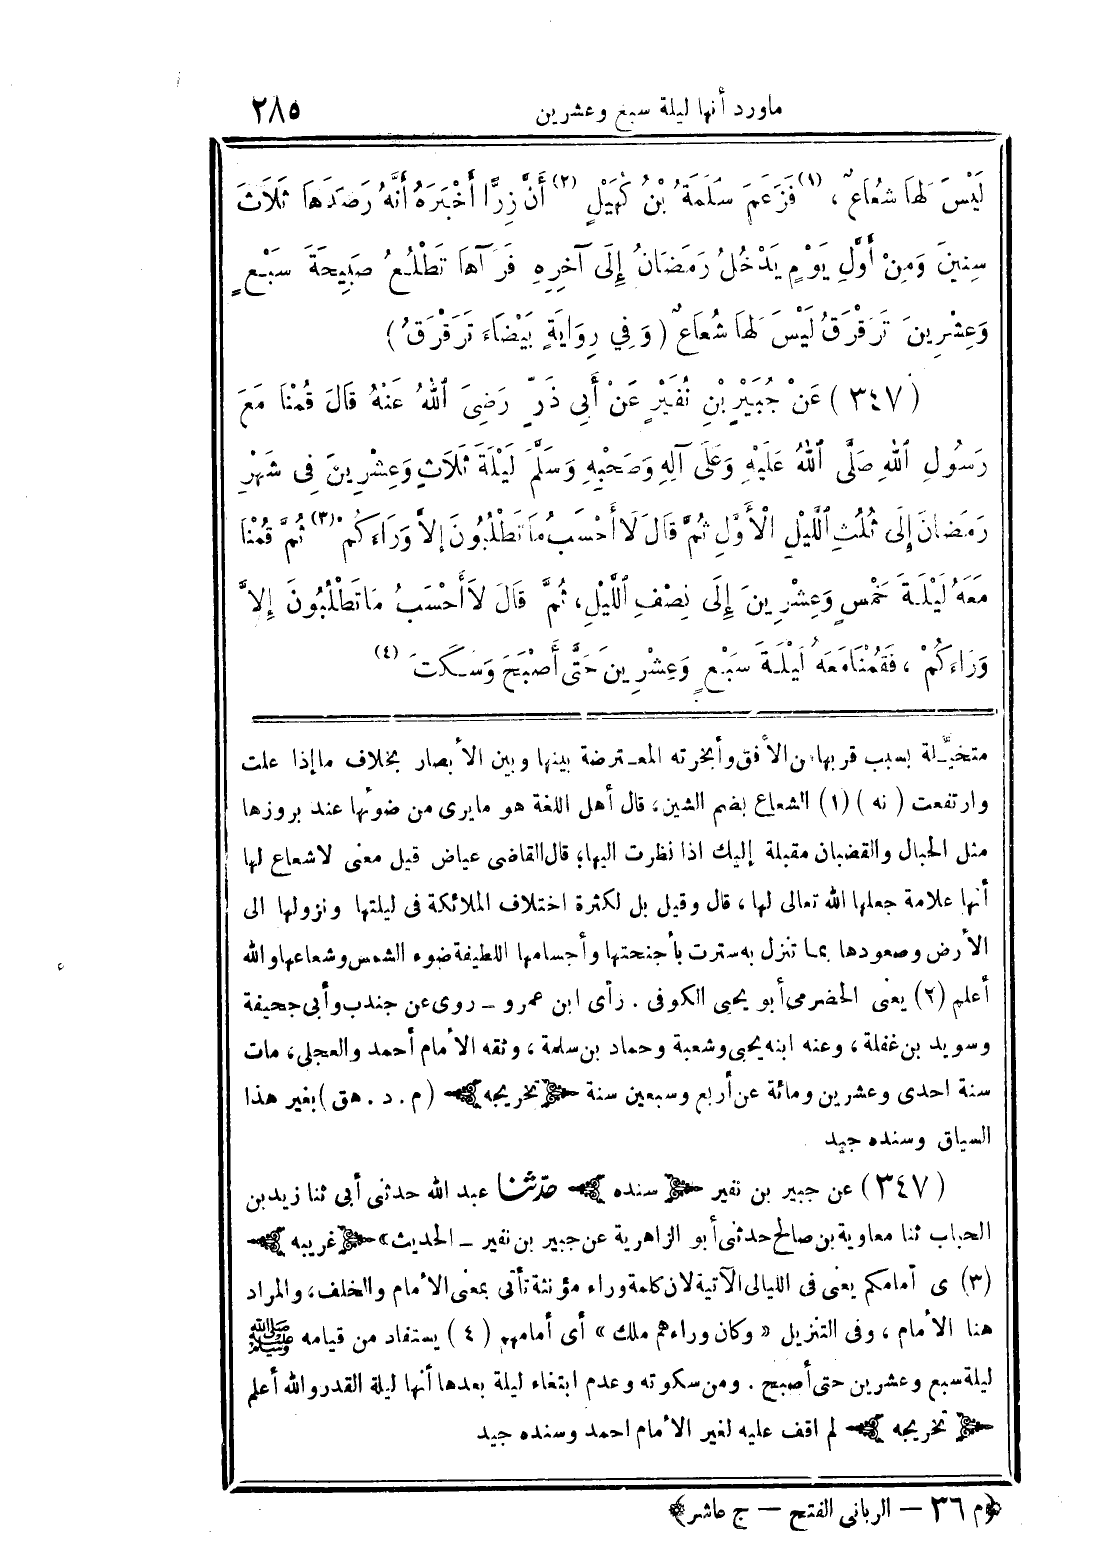 ماورد أنها ليلة سبع وعشرين
٢٨٥
لَيْسَ لَهَا شُعَاعٌ، (١) فَزَعَمَ سَلَمَةُ بْنُ كُهَيْلٍ (٢) أَنَّ زِرًّا أَخْبَرَهُ أَنَّهُ رَصَدَهَا ثَلَاثَ
سِنِينَ وَمِنْ أَوَّلِ يَوْمٍ يَدْخُلُ رَمَضَانُ إِلَى آخِرِهِ فَرَآهَا تَطْلُعُ صَبِيحَةَ سَبْعٍ
وَعِشْرِينَ تَرَقْرَقُ لَيْسَ لَهَا شُعَاعٌ (وَفِي رِوَايَةٍ بَيْضَاءَ تَرَقْرَقُ)
(٣٤٧) عَنْ جُبَيْرِ بْنِ نُفَيْرٍ عَنْ أَبِي ذَرٍّ رَضِيَ اللهُ عَنْهُ قَالَ قُمْنَا مَعَ
رَسُولِ اللهِ صَلَّى اللهُ عَلَيْهِ وَعَلَى آلِهِ وَصَحْبِهِ وَسَلَّمَ لَيْلَةَ ثَلَاثٍ وَعِشْرِينَ فِى شَهْرِ
رَمَضَانَ إِلَى ثُلُثِ اللَّيْلِ الْأَوَّلِ ثُمَّ قَالَ لَا أَحْسَبُ مَا تَطْلُبُونَ إِلَّا وَرَاءَكُمْ (٣) ثُمَّ قُمْنَا
مَعَهُ لَيْلَةَ خَمْسٍ وَعِشْرِينَ إِلَى نِصْفِ اللَّيْلِ، ثُمَّ قَالَ لَا أَحْسَبُ مَا تَطْلُبُونَ إِلَّا
وَرَاءَكُمْ، فَقُمْنَا مَعَهُ لَيْلَةَ سَبْعٍ وَعِشْرِينَ حَتَّى أَصْبَحَ وَسَكَتَ (٤)
متخيَّلة بسبب قربها من الأفق وأبخرته المعترضة بينها وبين الأبصار بخلاف ما إذا علت
وارتفعت (نه) (١) الشعاع بضم الشين، قال أهل اللغة هو مايرى من ضوئها عند بروزها
مثل الحبال والقضبان مقبلة إليك اذا نظرت اليها؛ قال القاضى عياض قيل معنى لاشعاع لها
أنها علامة جعلها الله تعالى لها، قال وقيل بل لكثرة اختلاف الملائكة فى ليلتها ونزولها الى
الأرض وصعودها بما تنزل به سترت بأجنحتها وأجسامها اللطيفة ضوء الشمس وشعاعها والله
أعلم (٢) يعنى الحضرمى أبو يحيى الكوفى. رأى ابن عمرو ــ روى عن جندب وأبى جحيفة
وسويد بن غفلة، وعنه ابنه يحيى وشعبة وحماد بن سلمة، وثقه الأمام أحمد والعجلى، مات
سنة احدى وعشرين ومائة عن أربع وسبعين سنة ﴿تخريجه﴾ (م. د. هق) بغير هذا
السياق وسنده جيد
(٣٤٧) عن جبير بن نفير ﴿سنده﴾ حدّثنا عبد الله حدثنى أبى ثنا زيد بن
الحباب ثنا معاوية بن صالح حدثنى أبو الزاهرية عن جبير بن نفير ــ الحديث» ﴿غريبه﴾
(٣) ى أمامكم يعنى فى الليالى الآتية لان كلمة وراء مؤنثة تأتى بمعنى الأمام والخلف، والمراد
هنا الأمام، وفى التنزيل «وكان وراءهم ملك» أى أمامهم (٤) يستفاد من قيامه ﷺ
ليلة سبع وعشرين حتى أصبح. ومن سكوته وعدم ابتغاء ليلة بعدها أنها ليلة القدر والله أعلم
﴿تخريجه﴾ لم اقف عليه لغير الأمام احمد وسنده جيد
﴿م ٣٦ – الربانى الفتح – ج عاشر﴾